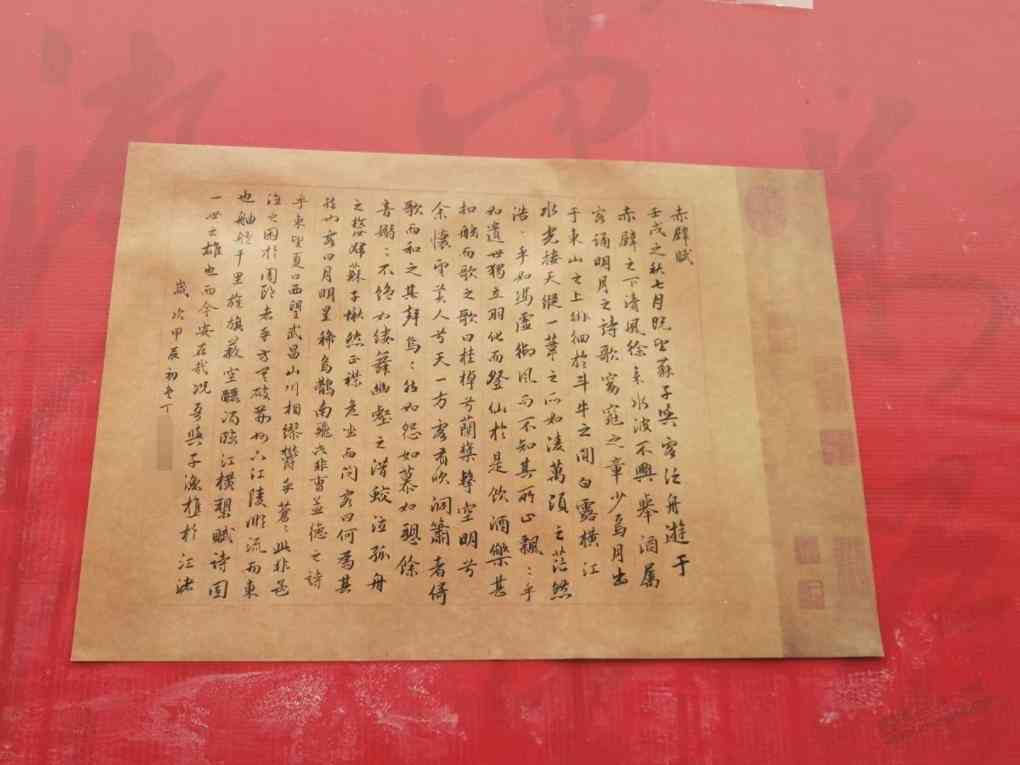 赤壁賦
壬戌之秋七月既望蘇子與客泛舟遊于
赤壁之下清風徐來水波不興舉酒屬
客誦明月之詩歌窈窕之章少焉月出
于東山之上徘徊於斗牛之間白露橫江
水光接天縱一葦之所如凌萬頃之茫然
浩：乎如馮虛御風而不知其所止飄：乎
如遺世獨立羽化而登仙於是飲酒樂甚
扣舷而歌之歌曰桂棹兮蘭槳擊空明兮
余懷望美人兮天一方客有吹洞簫者倚
歌而和之其聲嗚：然如怨如慕如聽餘
音嫋：不絕如縷舞幽壑之潛蛟泣孤舟
之嫠婦蘇子愀然正襟危坐而問客曰何為其
然也客曰月明星稀烏鵲南飛此非曹孟德之詩
乎東望夏口西望武昌山川相繆鬱乎蒼：此非孟
之困於周郎者乎方其破荊州下江陵順流而東
也舳艫千里旌旗蔽空釃酒臨江橫槊賦詩固
一世之雄也而今安在哉況吾與子漁樵於江渚
歲次甲辰初冬丁